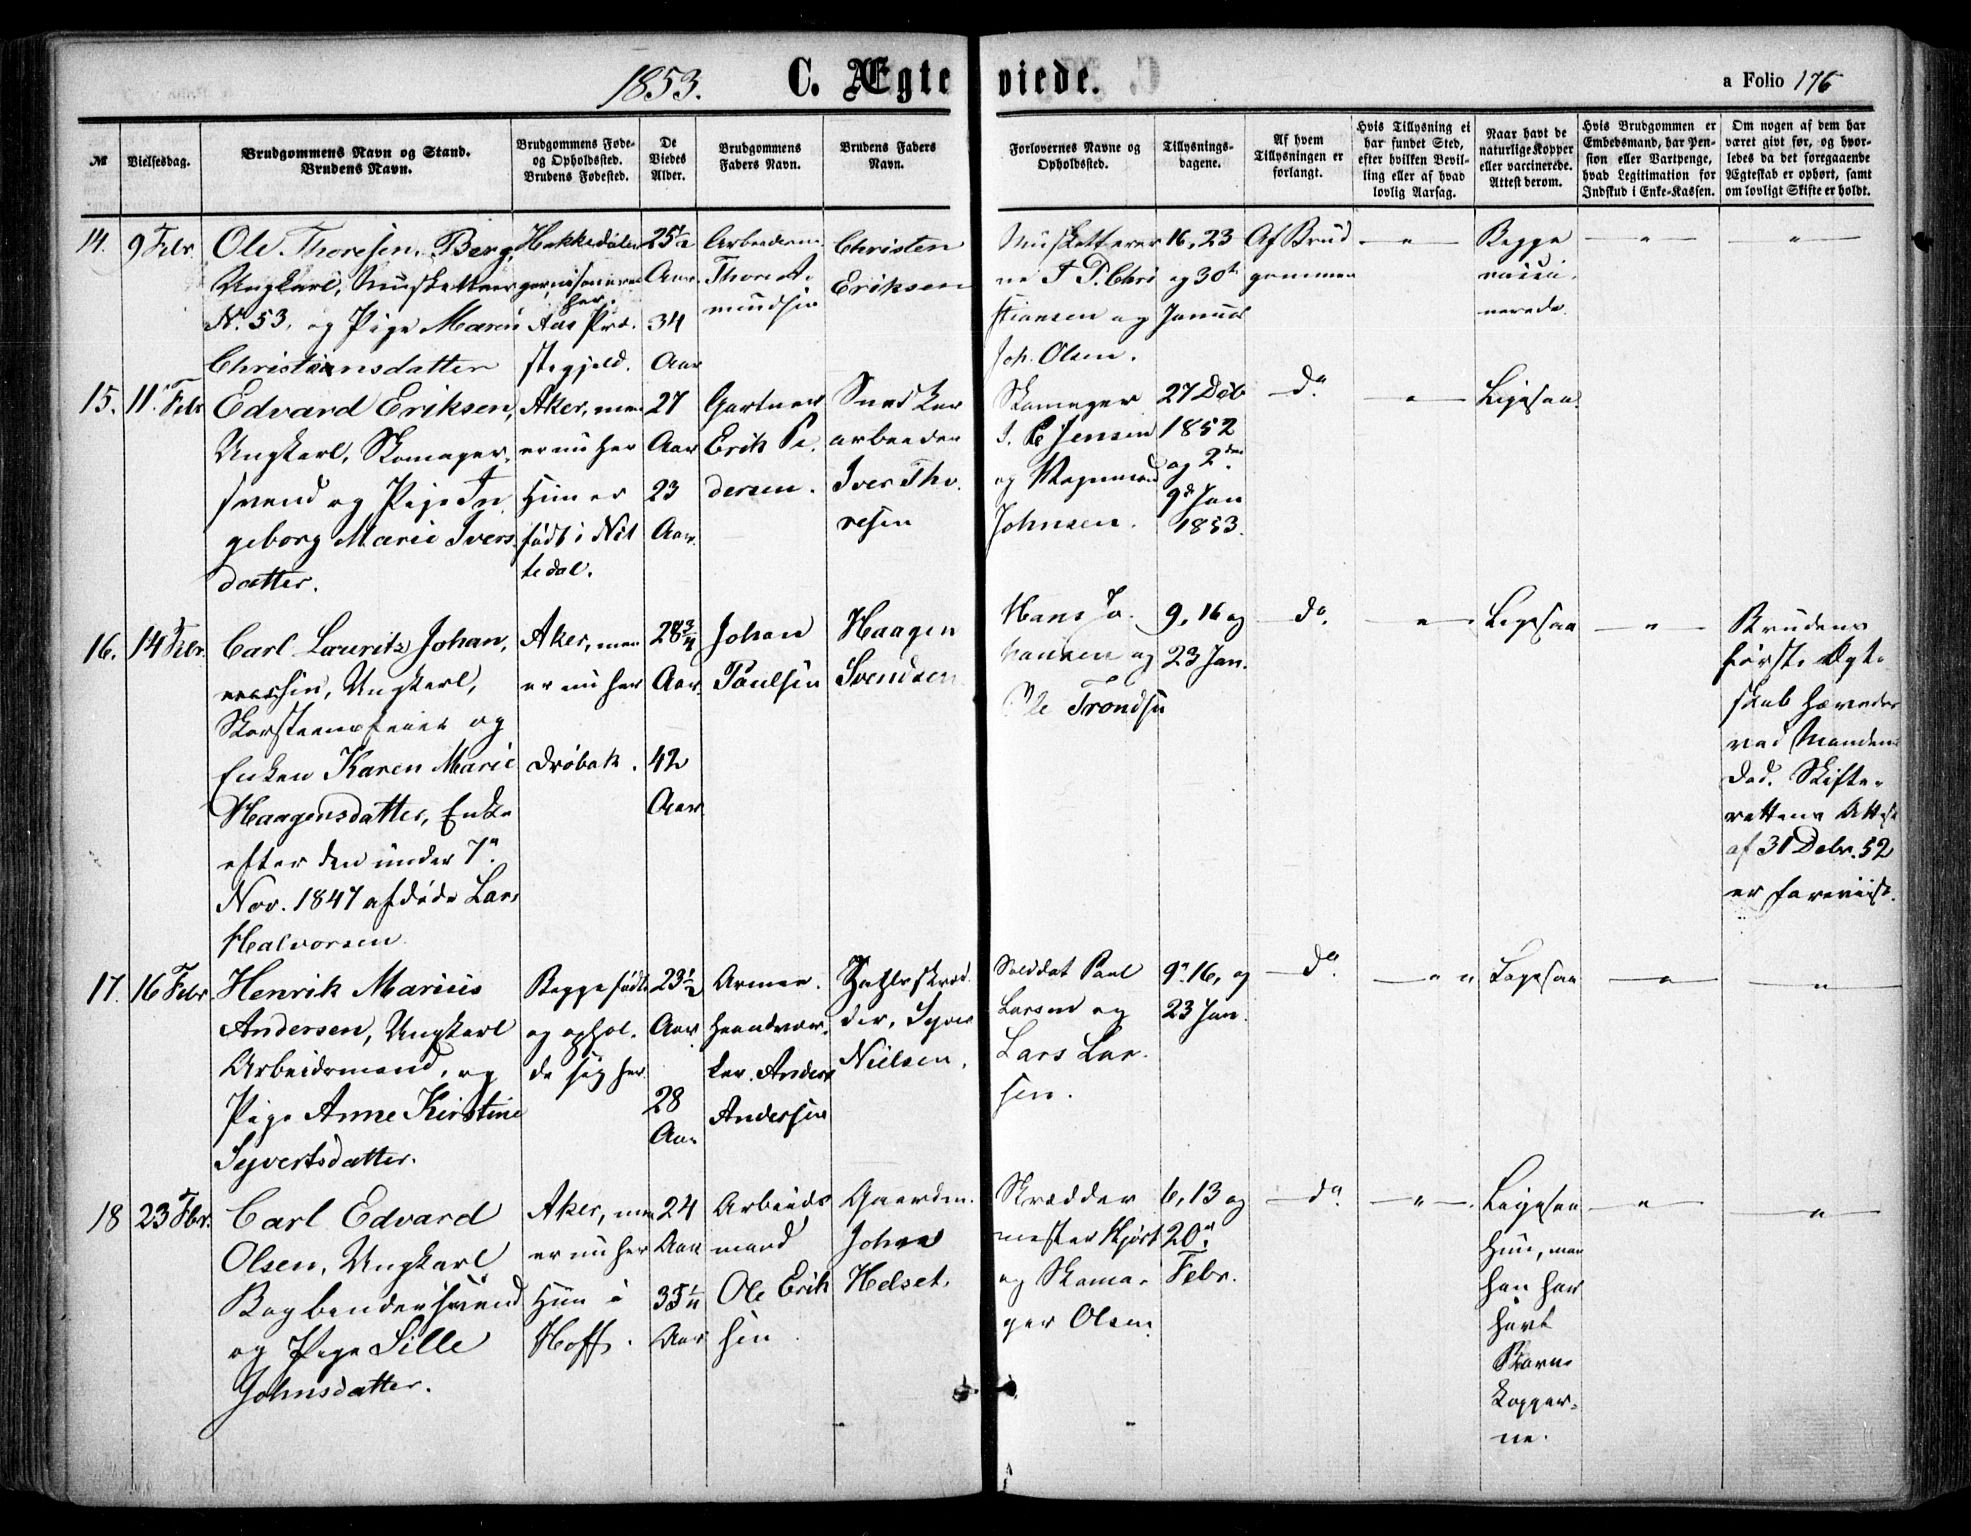 1853. C. Ægteviede. a Folio 176
№
Vielsesdag.
Brudgommens Navn og Stand.
Brudens Navn.
Brudgommens Føde-
og Opholdssted.
Brudens Fødested.
De
Viedes
Alder.
Brudgommens
Faders Navn.
Brudens Faders
Navn.
Forlovernes Navne og
Opholdssted.
Tillysnings-
dagene.
Af hvem
Tillysningen er
forlangt.
Hvis Tillysning ei
har fundet Sted,
efter hvilken Bevil-
ling eller af hvad
lovlig Aarsag.
Naar havt de
naturlige Kopper
eller vaccinerede.
Attest derom.
Hvis Brudgommen er
Embedsmand, har Pen-
sion eller Vartpenge,
hvad Legitimation for
Indskud i Enke-Kassen.
Om nogen af dem har
været givt før, og hvor-
ledes da det foregaaende
Ægteskab er ophørt, samt
om lovligt Skifte er holdt.
14.
9 Febr.
Ole Thoresen Berg,
Ungkarl, Musketteer
N. 53, og Pige Maren
Christiansdatter
Hakkedalen
garnisonerer
her.
Aas Præ-
stegjeld.
25½
Aar
34
Aar
Arbeider
Thore A-
mundsen
Christen
Eriksen
Musketterer-
ne J. P. Chri
stiansen og
Joh. Olsen.
16, 23
og 30te
Januar
Af Brud
gommen
"
Begge
vacci-
nerede.
"
"
15.
11. Febr
Edvard Eriksen,
Ungkarl, Skomager-
svend og Pige In
geborg Marie Ivers-
datter.
Aker, men
er nu her
Hun er
født i Nit
tedal.
27
Aar
23
Aar.
Gartner
Erik Pe-
dersen.
Snedker
arbeider
Iver Tho-
resen
Skomager
J. P. Jensen
og Magnus
Johnsen.
27 Deb
1852
og 2den
9de Jan
1853.
do
"
Ligesaa.
16.
14 Febr.
Carl Lauritz Johan,
sen, Ungkarl,
Skorsteensfeier og
Enken Karen Marie
Haagensdatter, Enke
efter den under 7de
Nov. 1847 afdøde Lars
Halvorsen
Aker, men
er nu her
Drøbak.
28¾
Aar.
42
Aar
Johan
Paulsen
Haagen
Svendsen
Hans Jo-
hansen og
Ole Trondsen
9, 16 og
23 Jan.
do.
"
Ligesaa
"
Brudens
første Ægte-
skab hævedes
ved Mandens
Død. Skifte-
rettens Attest
af 31 Debr. 52
er foreviist.
17.
16 Febr
Henrik Marius
Andersen, Ungkarl
Arbeidsmand, og
Pige Anne Kirstine
Syvertsdatter.
Begge fødte
og ophol-
de sig her
23½
Aar.
28
Aar
Haandvær-
ker. Anders
Andersen
Nielsen.
Soldat Paul
Larsen og
Lars Lar-
sen.
9de 16, og
23 Jan.
do.
" "
Ligesaa
"
"
18
23 Febr.
Carl Edvard
Olsen, Ungkarl
Bogbindersvend
og Pige Sille
Johnsdatter.
Aker, men
er nu her
Hun i
Hoff.
24
Aar
35¼
Aar
Arbeids
mand
Ole Erik
sen
Gaardm.
John
Helset.
Skrædder
mester Kjørt
og Skoma-
ger Olsen
6, 13 og
20de
Febr.
do
"
Ligesaa
Hun, men
han har
havt
Børne
kopper-
ne.
"
"